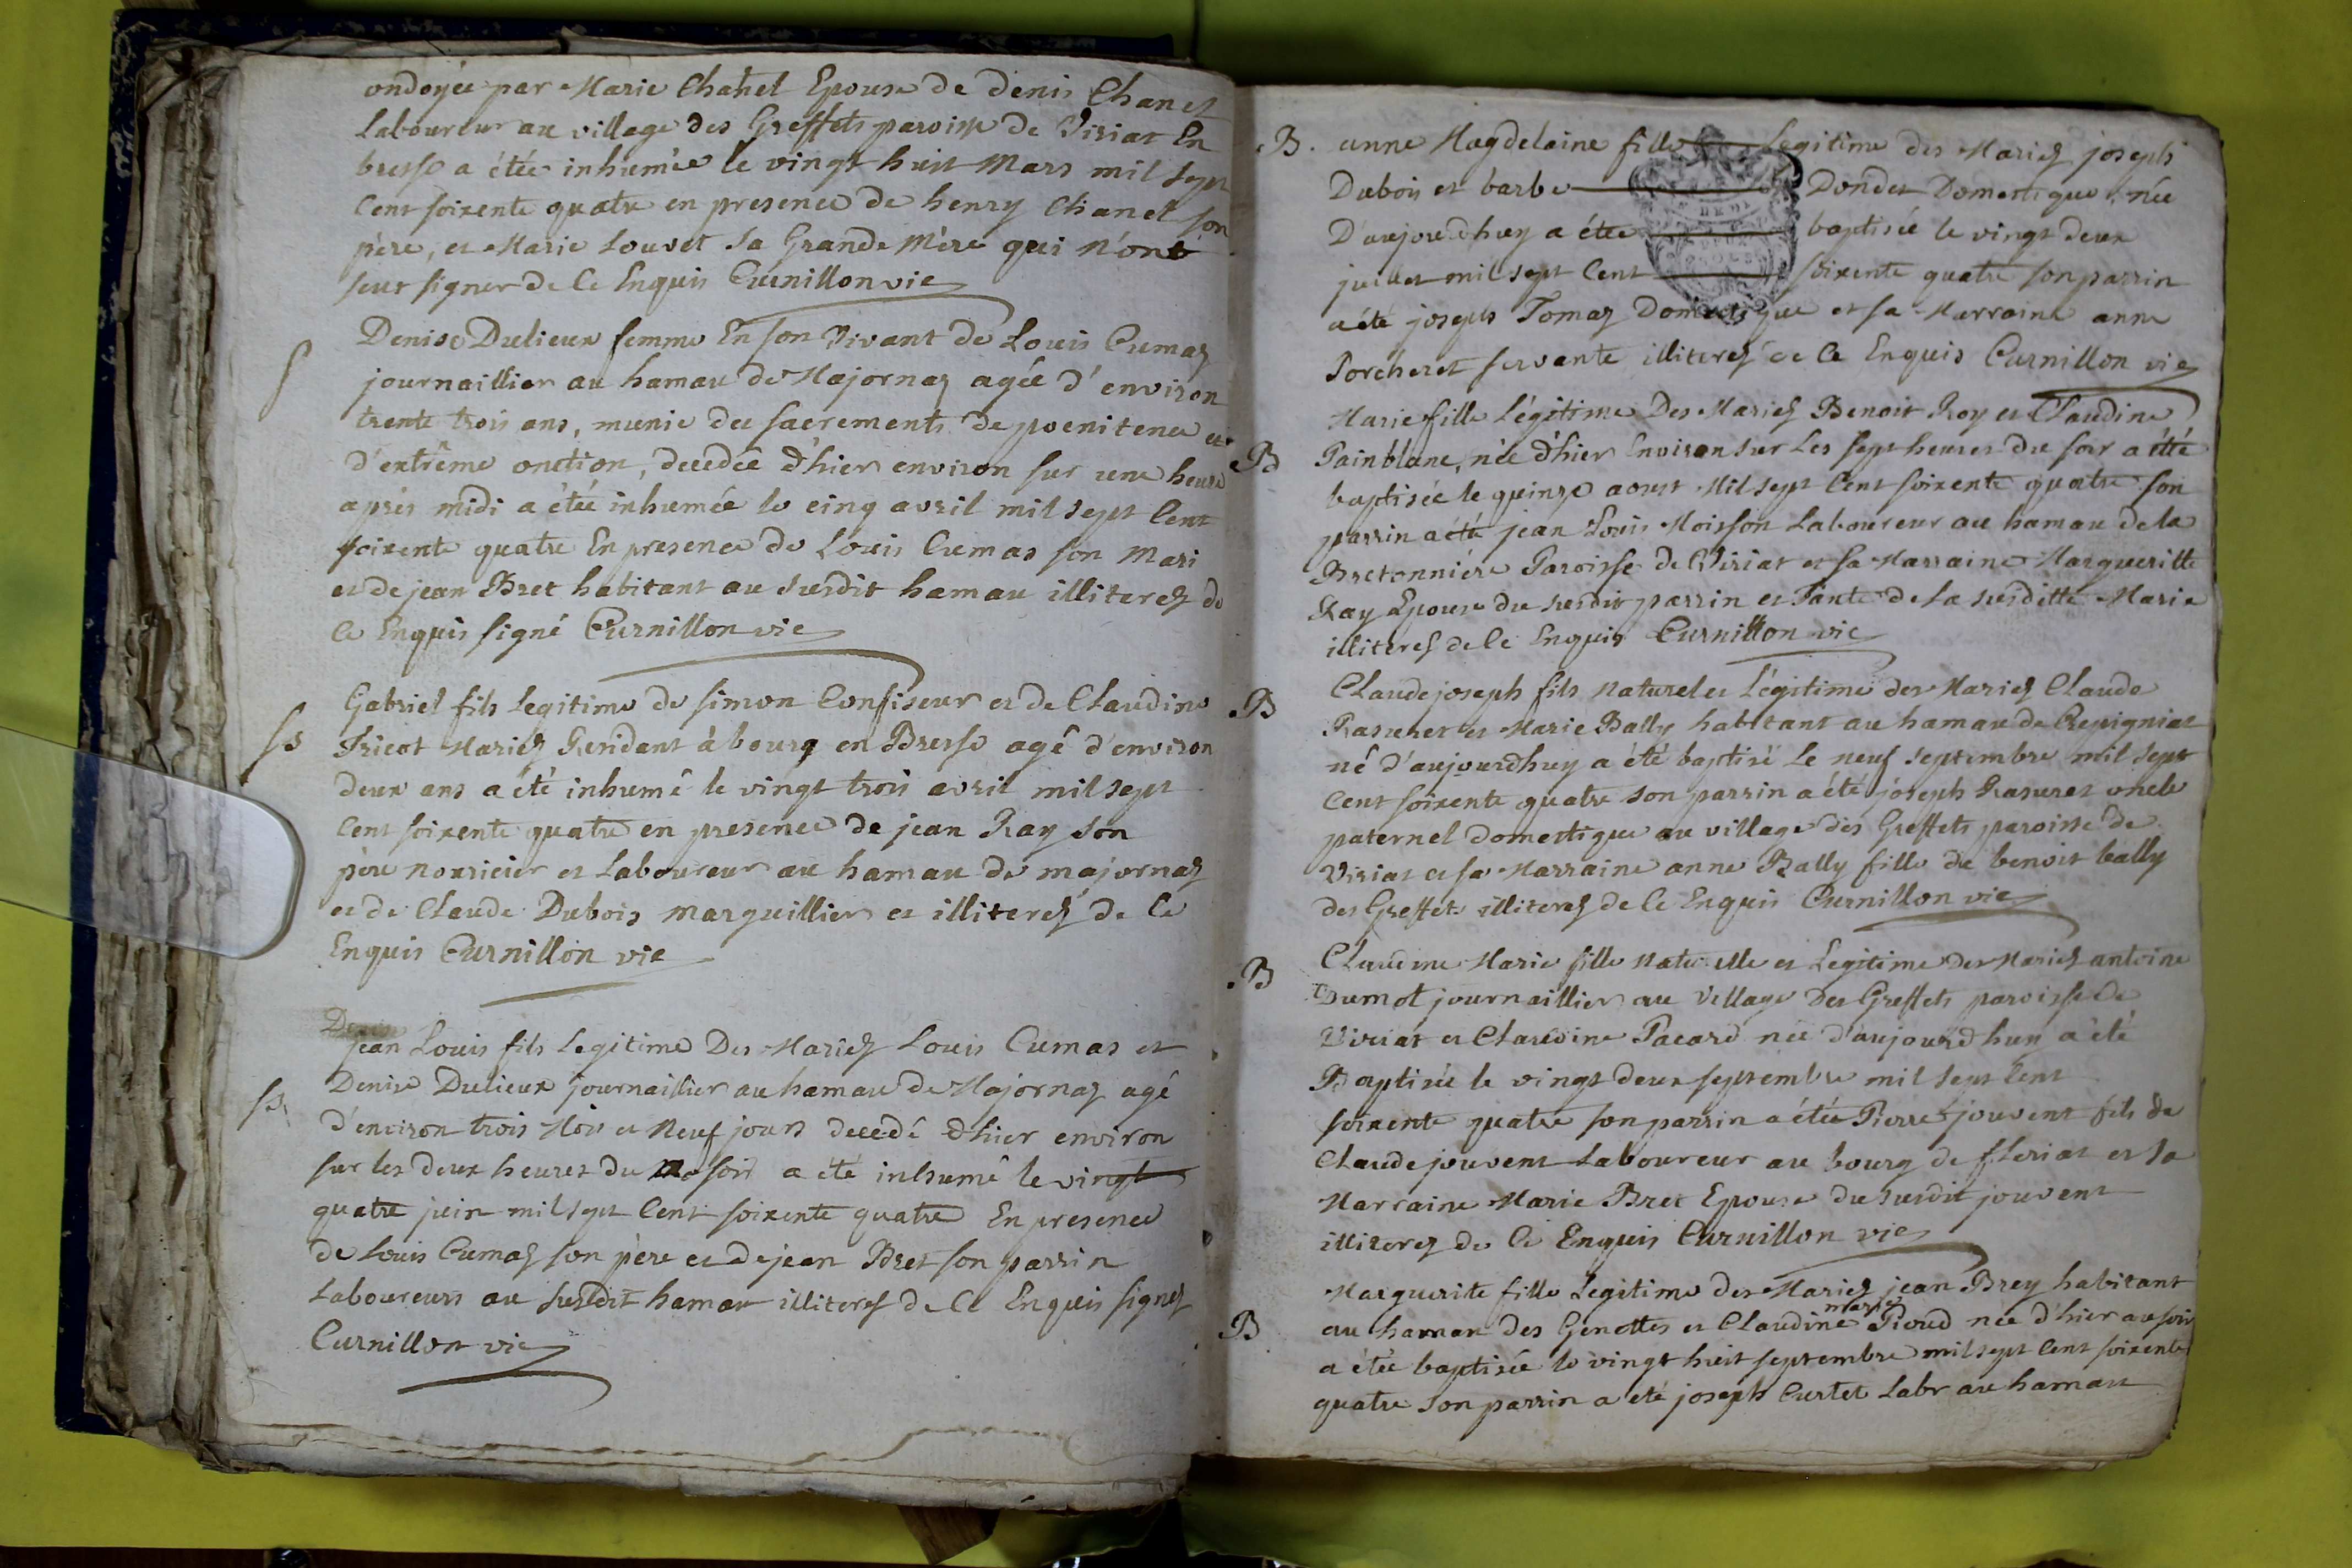 ondoyée par Marie Chanel Epouse de denis Chanel
Laboureur au village des Greffets paroisse de Viriat En
bresse a étée inhumée le vingt huit Mars mil sept
Cent soixente quatre en presence de henry Chanel son
père, et Marie Louvet sa Grande Mère qui n'ont
seut signer de Ce Enquis Curnillon vic
Denise Dulieux femme En son Vivant de Louis Cumaz
journaillier au hamau de Majornaz agée d'environ
trente trois ans, munie des sacrements de poenitence et
d'extrême onction, decedée d'hier environ sur une heure
après midi a étée inhumée le cinq avril mil sept Cent
soixente quatre En presence de Louis Cumas son Mari
et de jean Bret habitant au susdit hamau illiterez de
Ce Enquis signé Curnillon vic
S
Gabriel fils legitime de simon Confiseur et de Claudine
Tricot Mariez Residant à bourg en Bresse agé d'environ
deux ans a été inhumé le vingt trois avril mil sept
Cent soixente quatre en presence de jean Ray son
père nourricier et Laboureur au hamau de majornaz
et de Claude Dubois marguillier et illiterez de Ce
Enquis Curnillon vic
Ss
jean Louis fils legitime Des Mariez Louis Cumas et
Denise Dulieux journaillier au hamau de Majornaz agé
d'environ trois Mois et Neuf jours decedé d'hier environ
sur les deux heures du soir a été inhumé le vingt
quatre juin mil sept Cent soixente quatre En presence
de Louis Cumaz son père et de jean Bret son parrin
Laboureurs au susdit hamau illiterez de Ce Enquis signez
Curnillon vic
Ss
B. anne Magdelaine fille Legitime des Mariez joseph
Dubois et barbe Dondet Domestique, née
D'aujourdhuy a étée baptisée le vingt deux
juillet mil sept Cent soixente quatre son parrin
a été joseph Tomaz Domestique et sa Marraine anne
Porcheret servante illiterez de Ce Enquis Curnillon vic
Marie fille Légitime Des Mariez Benoit Roy et Claudine
B Painblanc, née d'hier Environ sur Les sept heures du soir a étté
baptisée le quinze aoust Mil sept Cent soixente quatre son
parrin a étté jean Louis Moisson Laboureur au hamau de la
Bretonnière Paroisse de Viriat et sa Marraine Margueritte
Ray Epouse du susdit parrin et Tante de la susditte Marie
illiterez de Ce Enquis Curnillon vic
B Claude joseph fils Naturel et Légitime des Mariez Claude
Rasurer et Marie Bally habitant au hamau de Crepigniat
né d'aujourdhuy a été baptisé Le neuf septembre mil sept
Cent soixente quatre son parrin a été joseph Rasurer oncle
paternel domestique au village des Greffets paroisse de
Viriat et sa Marraine anne Bally fille de benoit bally
des Greffets illiterez de Ce Enquis Curnillon vic
B Claudine Marie fille Naturelle et Legitime des Mariez antoine
Dumot journaillier au Village Des Greffets paroisse de
Viriat et Claudine Pacard née d'aujourdhuy a été
Baptisée le vingt deux septembre mil sept Cent
soixente quatre son parrin a étée Pierre jouvent fils de
Claude jouvent Laboureur au bourg de fleriat et sa
Marraine Marie Bret Epouse du susdit jouvent
illiterez de Ce Enquis Curnillon vic
Marguerite fille Legitime des Mariez jean Brey habitant
marie
B au hamau des Genottes et Claudine Pioud née d'hier au soir
a étée baptisée le vingt huit septembre mil sept Cent soixente
quatre son parrin a été joseph Curtet Labr au hamau